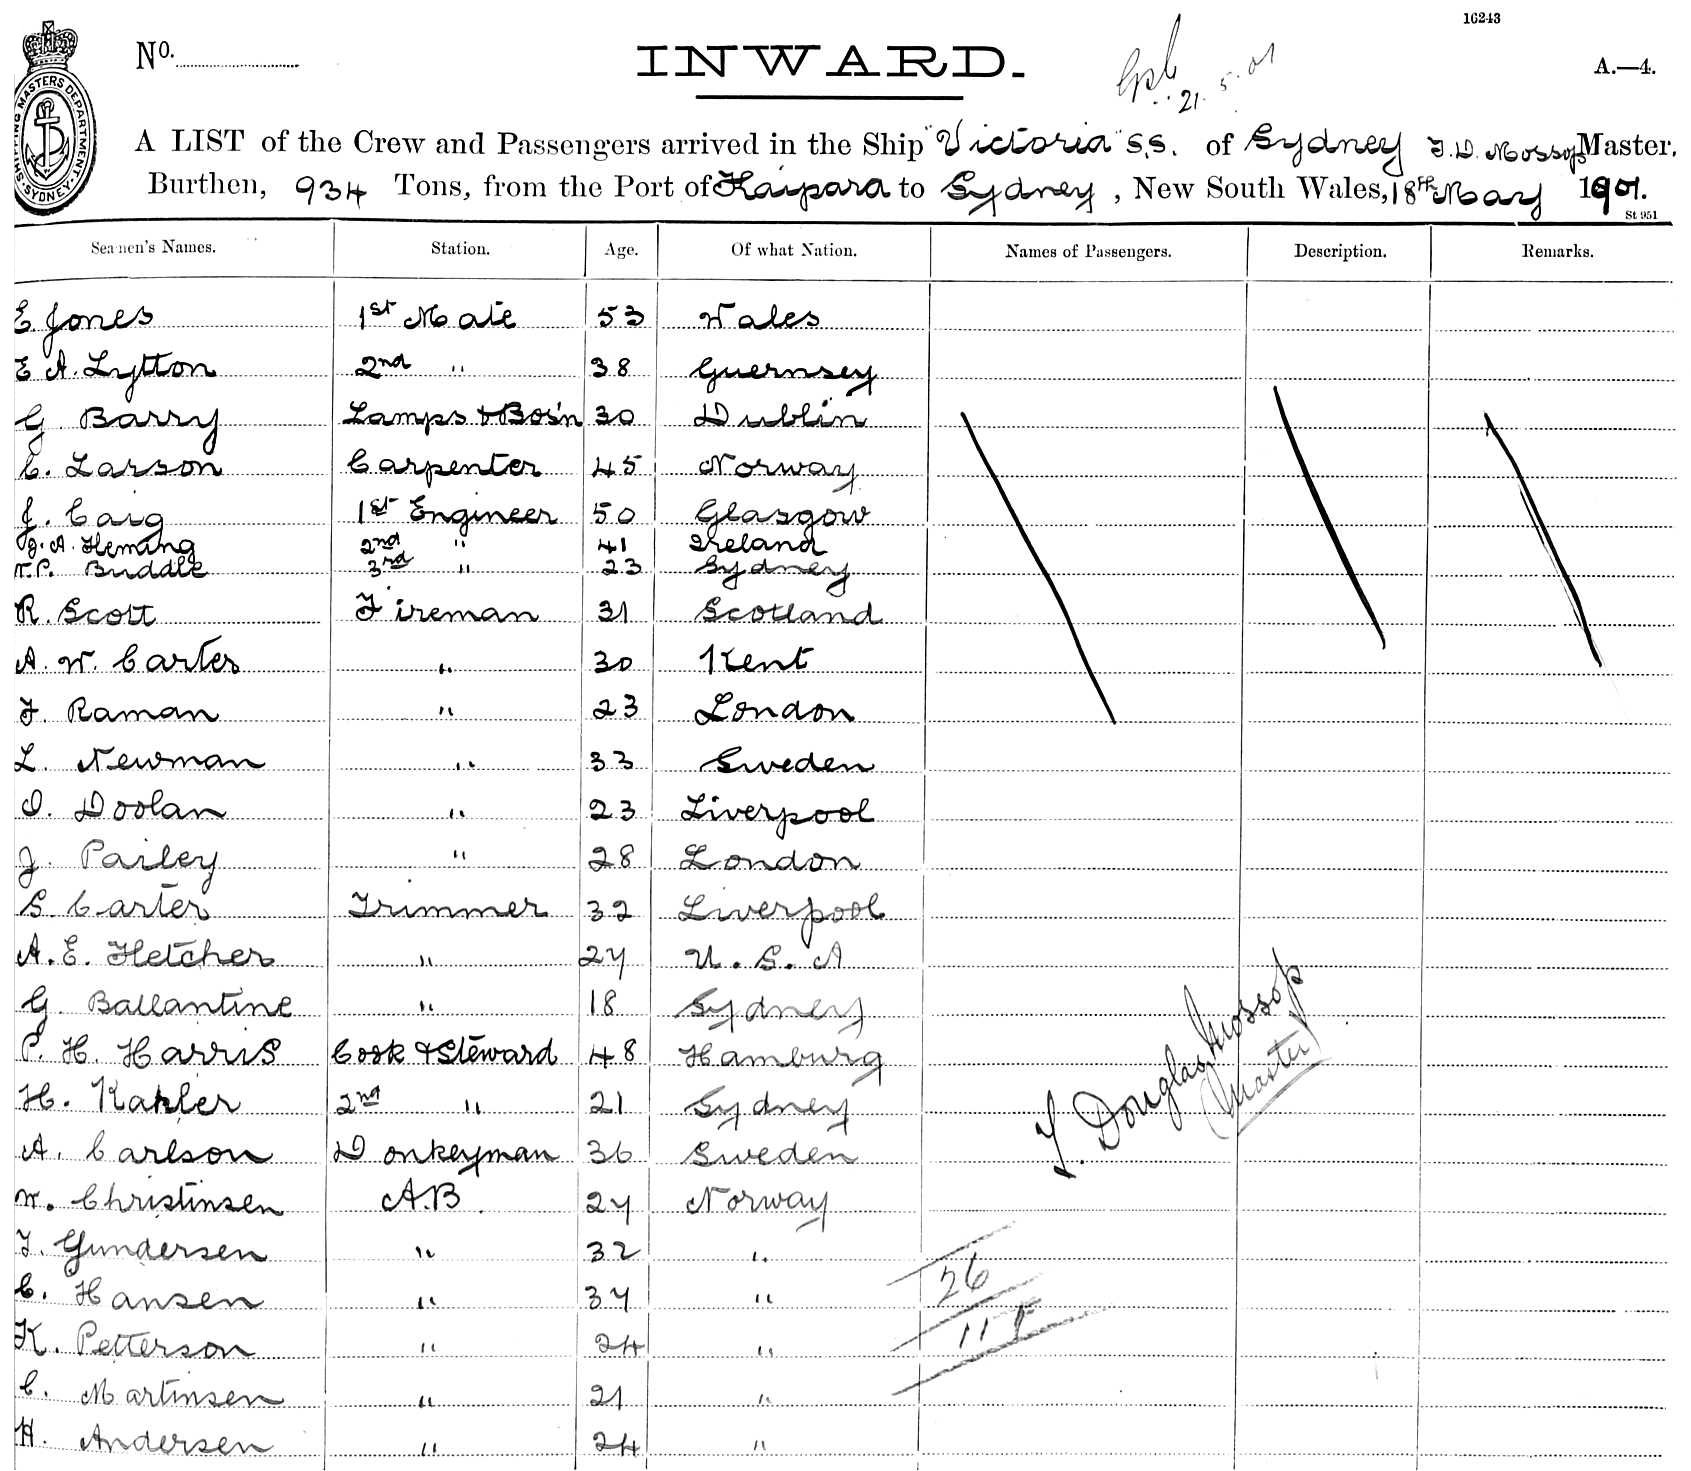 16243
No.
INWARD.
21.5.01
A.—4.
SHIPPING MASTERS DEPARTMENT. SYDNEY.
A LIST of the Crew and Passengers arrived in the Ship "Victoria" S.S. of Sydney T. D. Mossop Master,
Burthen, 934 Tons, from the Port of Kaipara to Sydney, New South Wales, 18th May 1901.
St 951
Seamen's Names. Station. Age. Of what Nation. Names of Passengers. Description. Remarks.
E Jones 1st Mate 53 Wales
E A. Lytton 2nd " 38 Guernsey
G Barry Lamps & Bos'n 30 Dublin
C. Larson Carpenter 45 Norway
J. Caig 1st Engineer 50 Glasgow
J. A. Fleming 2nd " 41 Ireland
W. P. Buddle 3rd " 23 Sydney
R. Scott Fireman 31 Scotland
A. W. Carter " 30 Kent
F. Raman " 23 London
L. Newman " 33 Sweden
D. Doolan " 23 Liverpool
J. Pailey " 28 London
S Carter Trimmer 32 Liverpool
A. E. Fletcher " 27 U. S. A
G. Ballantine " 18 Sydney
P. H. Harris Cook & Steward 48 Hamburg
H. Kahler 2nd " 21 Sydney
A. Carlson Donkeyman 36 Sweden
W. Christinsen A.B. 27 Norway
F. Gundersen " 32 "
C. Hansen " 37 "
K. Petterson " 24 "
C. Martinsen " 21 "
H. Andersen " 24 "
T. Douglas Mossop
(Master)
26
11